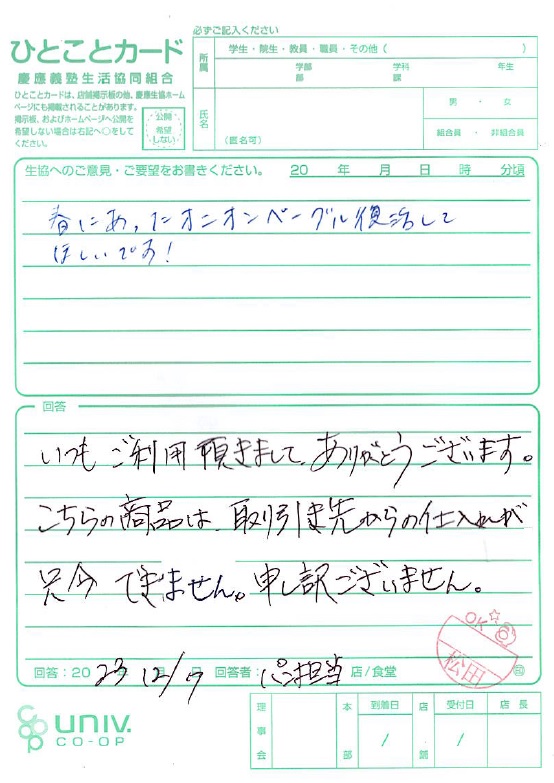 必ずご記入ください
ひとことカード
慶應義塾生活協同組合
ひとことカードは、店舗掲示板の他、慶應生協ホーム
ページにも掲載されることがあります。
掲示板、およびホームページへ公開を
希望しない場合は右記へ○をして
ください。
公開
希望
しない
所属
学生・院生・教員・職員・その他( )
学部 学科 年生
部 課
氏名
(匿名可)
男 ・ 女
組合員 ・ 非組合員
生協へのご意見・ご要望をお書きください。 20 年 月 日 時 分頃
春にあったオニオンベーグル復活して
ほしいです!
回答
いつもご利用頂きまして、ありがとうございます。
こちらの商品は、取引先からの仕入れが
只今できません。申し訳ございません。
OK☆
松田
回答:20 23 年 12/7 日 回答者:パン担当 店/食堂 ㊞
co-op univ.
CO-OP
理事会
本部
到着日
/
店・部
受付日
/
店長